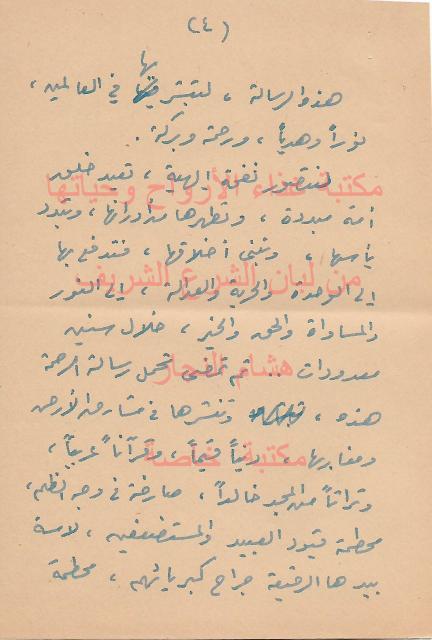 (٤)
هذه الرسالة ، لتبشر بها في العالمين ،
نوراً وهدياً ، ورحمة وبركة .
لنتصور نفحة إلهية ، تعيد خلق
مكتبة غذاء الأرواح وحياتها
أمة مبددة ، وتطهرها من أدرانها ، وتبدد
يأسها ، وتبني أخلاقها ، فتدفع بها
من لبان الشرع الشريف
إلى الوحدة والحرية والعدالة ، إلى النور
والمساواة والحق والخير ، خلال سنين
معدودات .. ثم تمضي تحمل رسالة الرحمة
هشام النجار
هذه ، وتنشرها في مشارق الأرض
ومغاربها ، ديناً قيماً ، وقرآناً عربياً ،
مكتبة خاصة
وتراثاً من المجد خالداً ، صارخة في وجه الظلم ،
محطمة قيود العبيد والمستضعفين ، لامسة
بيدها الرقيقة جراح كبريائهم ، محطمة